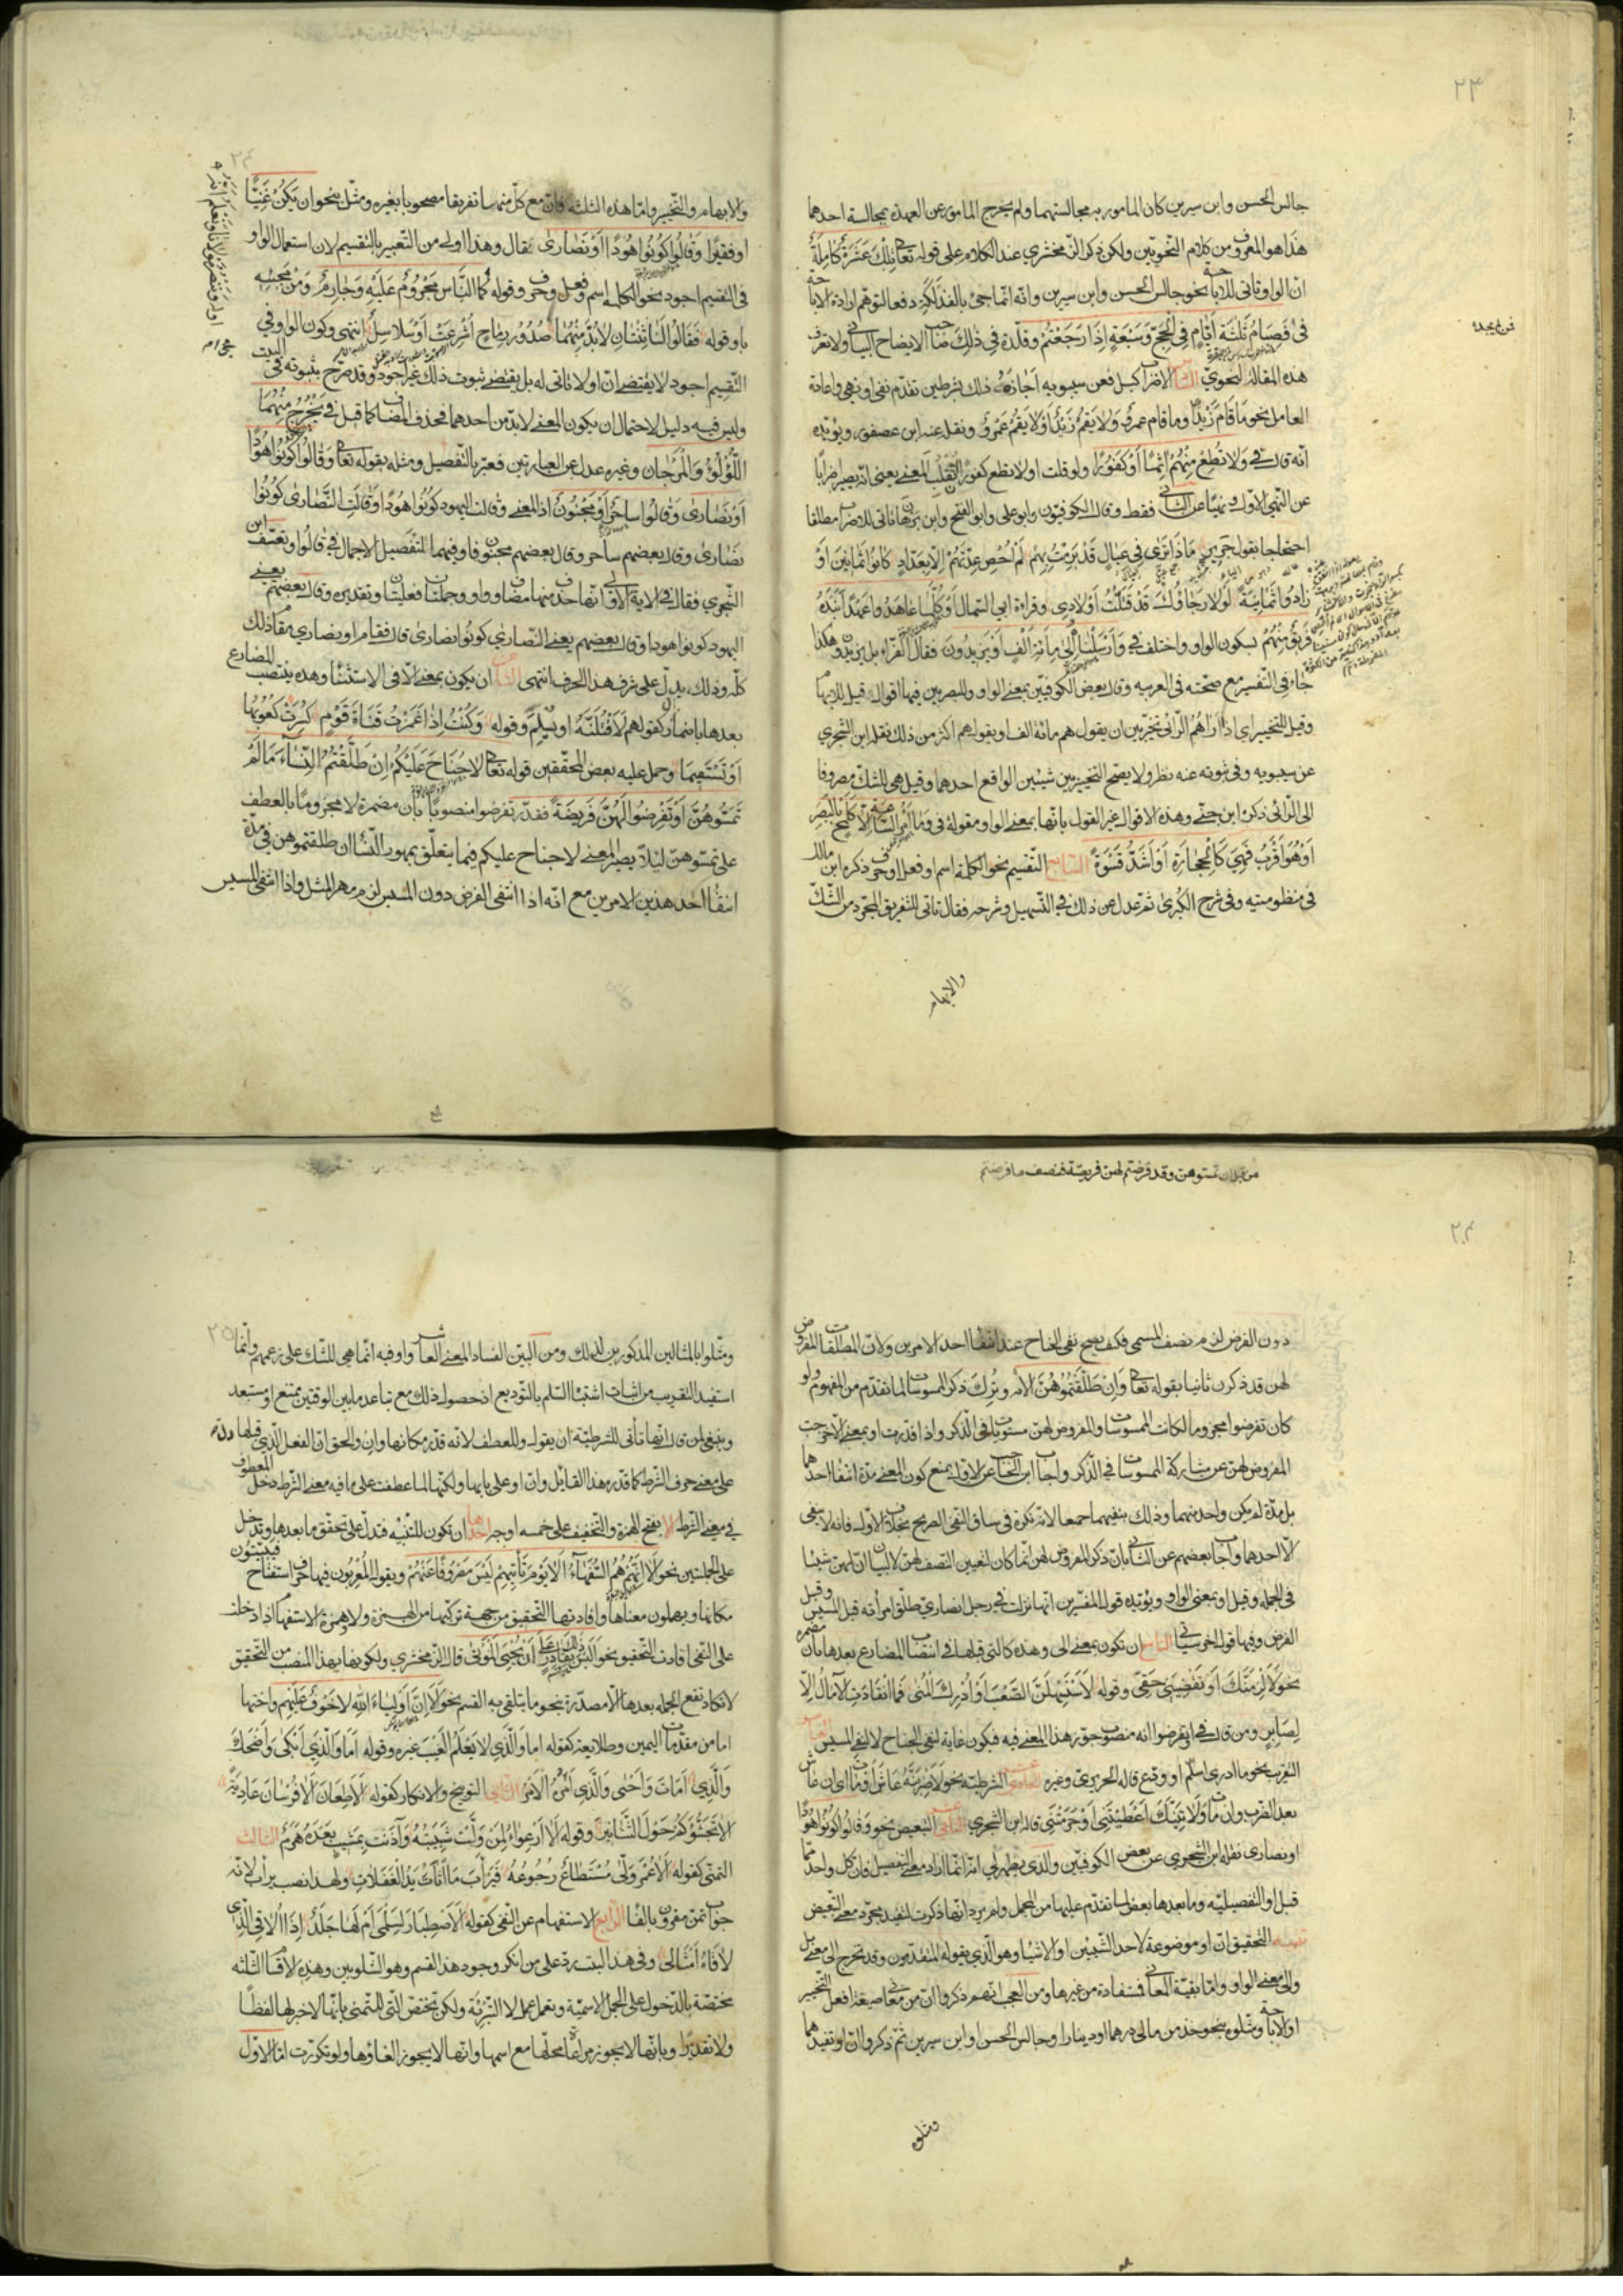 ٢٣
جالس الحسن وابن سيرين كان المامور به مجالستهما ولم يخرج المامور عن العهدة بمجالسة احدهما
هذا هو المعروف من كلام النحويين ولكن ذكر الزمخشري عند الكلام على قوله تعالى تلك عشرة كاملة
ان الواو تاتى للاباحة نحو جالس الحسن وابن سيرين وانه انما جئ بالفذلكة دفعا لتوهم ارادة الاباحة
فى فصيام ثلثة ايام فى الحج وسبعة اذا رجعتم وقلده فى ذلك صاحب الايضاح البيانى ولا تعرف
هذه المقالة لنحوي السادس الاضراب كبل فعن سيبويه اجازة ذلك بشرطين تقدم نفى او نهى واعادة
العامل نحو ما قام زيد او ما قام عمرو ولا يقم زيد او لا يقم عمرو ونقله عنه ابن عصفور ويؤيده
انه قال فى ولا تطع منهم اثما او كفورا ولو قلت او لا تطع كفورا انقلب المعنى يعنى انه يصير اضرابا
عن النهى الاول ونهيا عن الثانى فقط وقال الكوفيون وابو على وابو الفتح وابن برهان تاتى للاضراب مطلقا
احتجاجا بقول جرير ماذا ترى فى عيال قد برمت بهم لم احص عدتهم الا بعداد كانوا ثمانين او
زادوا ثمانية لولا رجاؤك قد قتلت اولادى وقراءة ابى السمال او كلما عاهدوا عهدا نبذه
فريق منهم بسكون الواو واختلف فى وارسلناه الى مائة الف او يزيدون فقال الفراء بل يزيدون هكذا
جاء فى التفسير مع صحته فى العربيه وقال بعض الكوفيين بمعنى الواو وللبصريين فيها اقوال قيل للابهام
وقيل للتخيير اى اذا راهم الرائى تخير بين ان يقول هم مائة الف او يقول هم اكثر من ذلك نقله ابن الشجري
عن سيبويه وفى ثبوته عنه نظر ولا يصح التخيير بين شيئين الواقع احدهما وقيل هى للشك مصروفا
الى الرائى ذكره ابن جنى وهذه الاقوال غير القول بانها بمعنى الواو مقولة فى وما امر الساعة الا كلمح بالبصر
او هو اقرب فهى كالحجارة او اشد قسوة السابع التقسيم نحو الكلمة اسم وفعل او حرف ذكره ابن مالك
فى منظومته وفى شرح الكبرى ثم عدل عن ذلك فى التسهيل وشرحه فقال تاتى للتفريق المجرد من الشك
والابهام
والابهام والتخيير واما هذه الثلثة فان مع كل منها تفريقا مصحوبا بغيره ومثل بنحو ان يكن غنيا
او فقيرا وقالوا كونوا هودا او نصارى قال وهذا اولى من التعبير بالتقسيم لان استعمال الواو
فى التقسيم اجود نحو الكلمة اسم وفعل وحرف وقوله كما الناس مجروم عليه وجارم ومن مجيئه
باو قوله فقالوا لنا ثنتان لا بد منهما صدور رماح اشرعت او سلاسل انتهى وكون الواو فى
التقسيم اجود لا يقتضى ان او لا تاتى له بل يقتضى ثبوت ذلك غير اجود وقد صرح بثبوته فى البيت
وليس فيه دليل لاحتمال ان يكون المعنى لا بد من احدهما فحذف المضاف كما قيل فى يخرج منهما
اللؤلؤ والمرجان وغيره عدل عن العبارتين فعبر بالتفصيل ومثله بقوله تعالى وقالوا كونوا هودا
او نصارى وقالوا ساحر او مجنون اذ المعنى وقالت اليهود كونوا هودا وقالت النصارى كونوا
نصارى وقال بعضهم ساحر وقال بعضهم مجنون فاو فيهما لتفصيل الاجمال فى قالوا وتعسف ابن
الشجري فقال فى الاية الاولى انها حذف منها مضاف وواو وجملتان فعليتان وتقديره وقال بعضهم يعنى
اليهود كونوا هودا وقال بعضهم يعنى النصارى كونوا نصارى قال فقام او نصارى مقام ذلك
كله وذلك يدل على شرف هذا الحرف انتهى الثامن ان يكون بمعنى الا فى الاستثناء وهذه ينتصب المضارع
بعدها باضمار ان كقولهم لاقتلنه او يسلم وقوله وكنت اذا غمزت قناة قوم كسرت كعوبها
او تستقيما وحمل عليه بعض المحققين قوله تعالى لا جناح عليكم ان طلقتم النساء ما لم
تمسوهن او تفرضوا لهن فريضة فقدر تفرضوا منصوبا بان مضمرة لا مجزوما بالعطف
على تمسوهن لئلا يصير المعنى لا جناح عليكم فيما يتعلق بمهور النساء ان طلقتموهن فى مدة
انتفاء احد هذين الامرين مع انه اذا انتفى الفرض دون المسيس لزم مهر المثل واذا انتفى المسيس
من قبل ان تمسوهن وقد فرضتم لهن فريضة فنصف ما فرضتم
٢٤
دون الفرض لزم نصف المسمى فكيف يصح نفى الجناح عند انتفاء احد الامرين ولان المطلقات المفروض
لهن قد ذكرن ثانيا بقوله تعالى وان طلقتموهن الاية وترك ذكر الممسوسات لما تقدم من المفهوم ولو
كان تفرضوا مجزوما لكانت الممسوسات والمفروض لهن مستويات فى الذكر واذا قدرت او بمعنى الا خرجت
المفروض لهن عن مشاركة الممسوسات فى الذكر واجاب ابن الحاجب عن الاول بمنع كون المعنى مدة انتفاء احدهما
بل مدة لم يكن واحد منهما وذلك بنفيهما جميعا لانه نكرة فى سياق النفى الصريح بخلاف الاول فانه لا ينفى
الا احدهما واجاب بعضهم عن الثانى بان ذكر المفروض لهن انما كان لتعيين النصف لهن لا لبيان ان لهن شيئا
فى الجملة وقيل او بمعنى الواو ويؤيده قول المفسرين انها نزلت فى رجل انصاري طلق امرأته قبل المسيس وقبل
الفرض وفيها قول اخر سياتى التاسع ان تكون بمعنى الى وهذه كالتى قبلها فى انتصاب المضارع بعدها بان مضمرة
نحو لالزمنك او تقضينى حقى وقوله لاستسهلن الصعب او ادرك المنى فما انقادت الامال الا
لصابر ومن قال فى او تفرضوا انه منصوب جوز هذا المعنى فيه فيكون غاية لنفى الجناح لا لنفى المسيس العاشر
التقريب نحو ما ادرى اسلم او ودع قاله الحريري وغيره الحادى عشر الشرطية نحو لاضربنه عاش او مات اى ان عاش
بعد الضرب وان مات ولاتينك اعطيتنى او حرمتنى قاله ابن الشجري الثانى عشر التبعيض نحو وقالوا كونوا هودا
او نصارى نقله ابن الشجري عن بعض الكوفيين والذى يظهر لي انه انما اراد معنى التفصيل فان كل واحد مما
قبل او التفصيلية وما بعدها بعض لما تقدم عليهما من المجمل ولم يرد انها ذكرت لتفيد مجرد معنى التبعيض
تنبيه التحقيق ان او موضوعة لاحد الشيئين او الاشياء وهو الذى يقوله المتقدمون وقد تخرج الى معنى بل
والى معنى الواو واما بقية المعانى فمستفادة من غيرها ومن العجب انهم ذكروا ان من معانى صيغة افعل التخيير
او الاباحة ومثلوه بنحو خذ من مالى درهما او دينارا وجالس الحسن او ابن سيرين ثم ذكروا ان او تفيدهما
ومثلوه
٢٥
ومثلوا بالمثالين المذكورين لذلك ومن البين الفساد المعنى العاشر واو فيه انما هى للشك على زعمهم وانما
استفيد التقريب من اثبات اشتباه السلم بالتوديع اذ حصول ذلك مع تباعد ما بين الوقتين ممتنع او مستبعد
وينبغى لمن قال انها تأتى للشرطية ان يقول وللعطف لانه قدر مكانها وان والحق ان الفعل الذى قبلها دال
على معنى حرف الشرط كما قدره هذا القائل وان او على بابها ولكنها لما عطفت على ما فيه معنى الشرط دخل المعطوف
فى معنى الشرط الا بفتح الهمزة والتخفيف على خمسة اوجه احدها ان تكون للتنبيه فتدل على تحقق ما بعدها وتدخل
على الجملتين نحو الا انهم هم السفهاء الا يوم يأتيهم ليس مصروفا عنهم ويقول المعربون فيها حرف استفتاح فيبينون
مكانها ويهملون معناها وافادتها التحقيق من جهة تركيبها من الهمزة ولا وهمزة الاستفهام اذا دخلت
على النفى افادت التحقيق نحو اليس ذلك بقادر على ان يحيى الموتى قال الزمخشري ولكونها بهذا المنصب من التحقيق
لا تكاد تقع الجملة بعدها الا مصدرة بنحو ما يتلقى به القسم نحو الا ان اولياء الله لا خوف عليهم واختها
اما من مقدمات اليمين وطلايعه كقوله اما والذى لا يعلم الغيب غيره وقوله اما والذى ابكى واضحك
والذى امات واحيى والذى امره الامر الثانى التوبيخ والانكار كقوله الا طعان الا فرسان عادية
الا تجشؤكم حول التنانير وقوله الا ارعواء لمن ولت شبيبته وآذنت بمشيب بعده هرم الثالث
التمنى كقوله الا عمر ولى مستطاع رجوعه فيرأب ما اثأت يد الغفلات ولهذا نصب يرأب لانه
جواب تمن مقرون بالفاء الرابع الاستفهام عن النفى كقوله الا اصطبار لسلمى ام لها جلد اذا الاقى الذى
لاقاه امثالى وفى هذا البيت رد على من انكر وجود هذا القسم وهو الشلوبين وهذه الاقسام الثلثة
مختصة بالدخول على الجمل الاسمية وتعمل عمل لا التبرئة ولكن تختص التى للتمنى بانها لا خبر لها لفظا
ولا تقديرا وبانها لا يجوز مراعاة محلها مع اسمها وانها لا يجوز الغاؤها ولو تكررت اما الاول